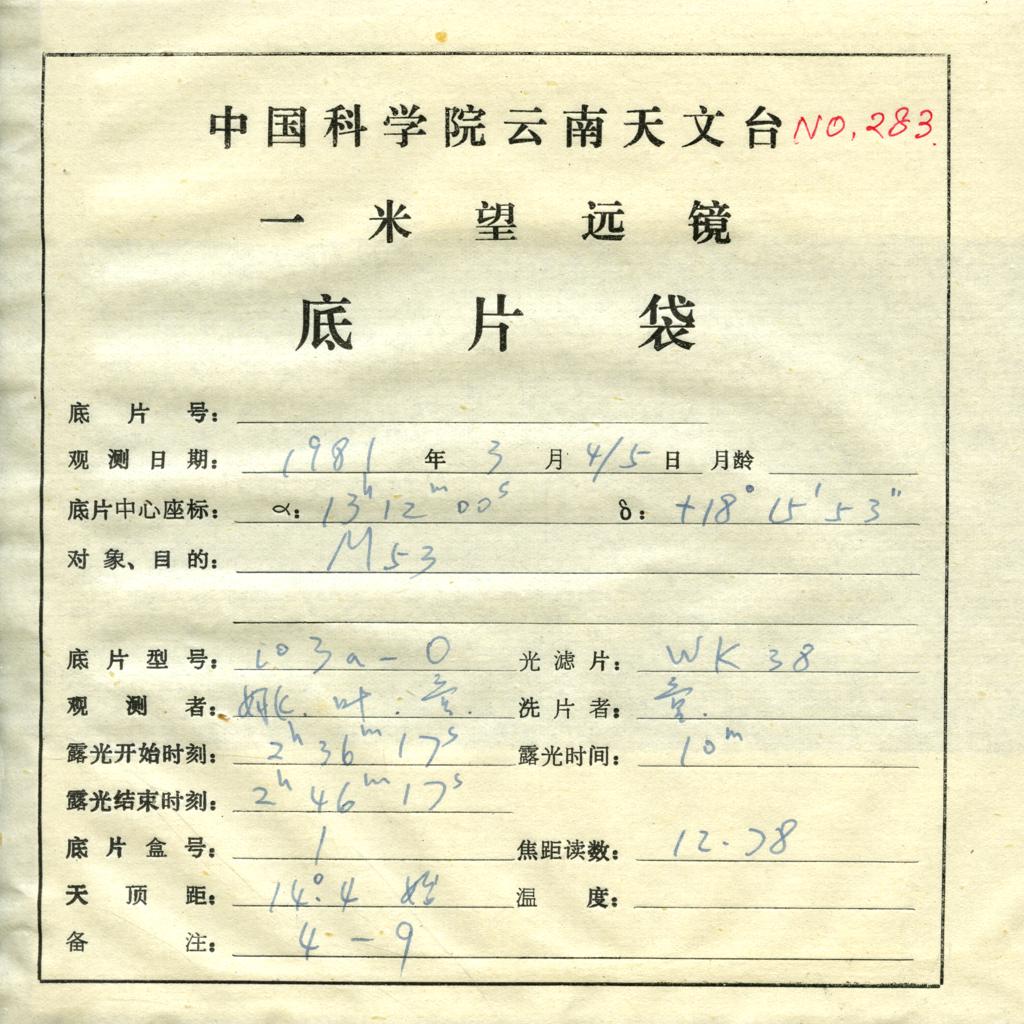 中国科学院云南天文台 NO.283.
一米望远镜
底片袋
底片号:
观测日期: 1981 年 3 月 4/5 日 月龄
底片中心座标: α: 13h12m00s δ: +18°15′53″
对象、目的: M53
底片型号: 103a-O 光滤片: WK38
观测者: 姚. 叶. 洗片者:
露光开始时刻: 2h36m17s 露光时间: 10m
露光结束时刻: 2h46m17s
底片盒号: 1 焦距读数: 12.78
天顶距: 14°.4 温度:
备注: 4-9